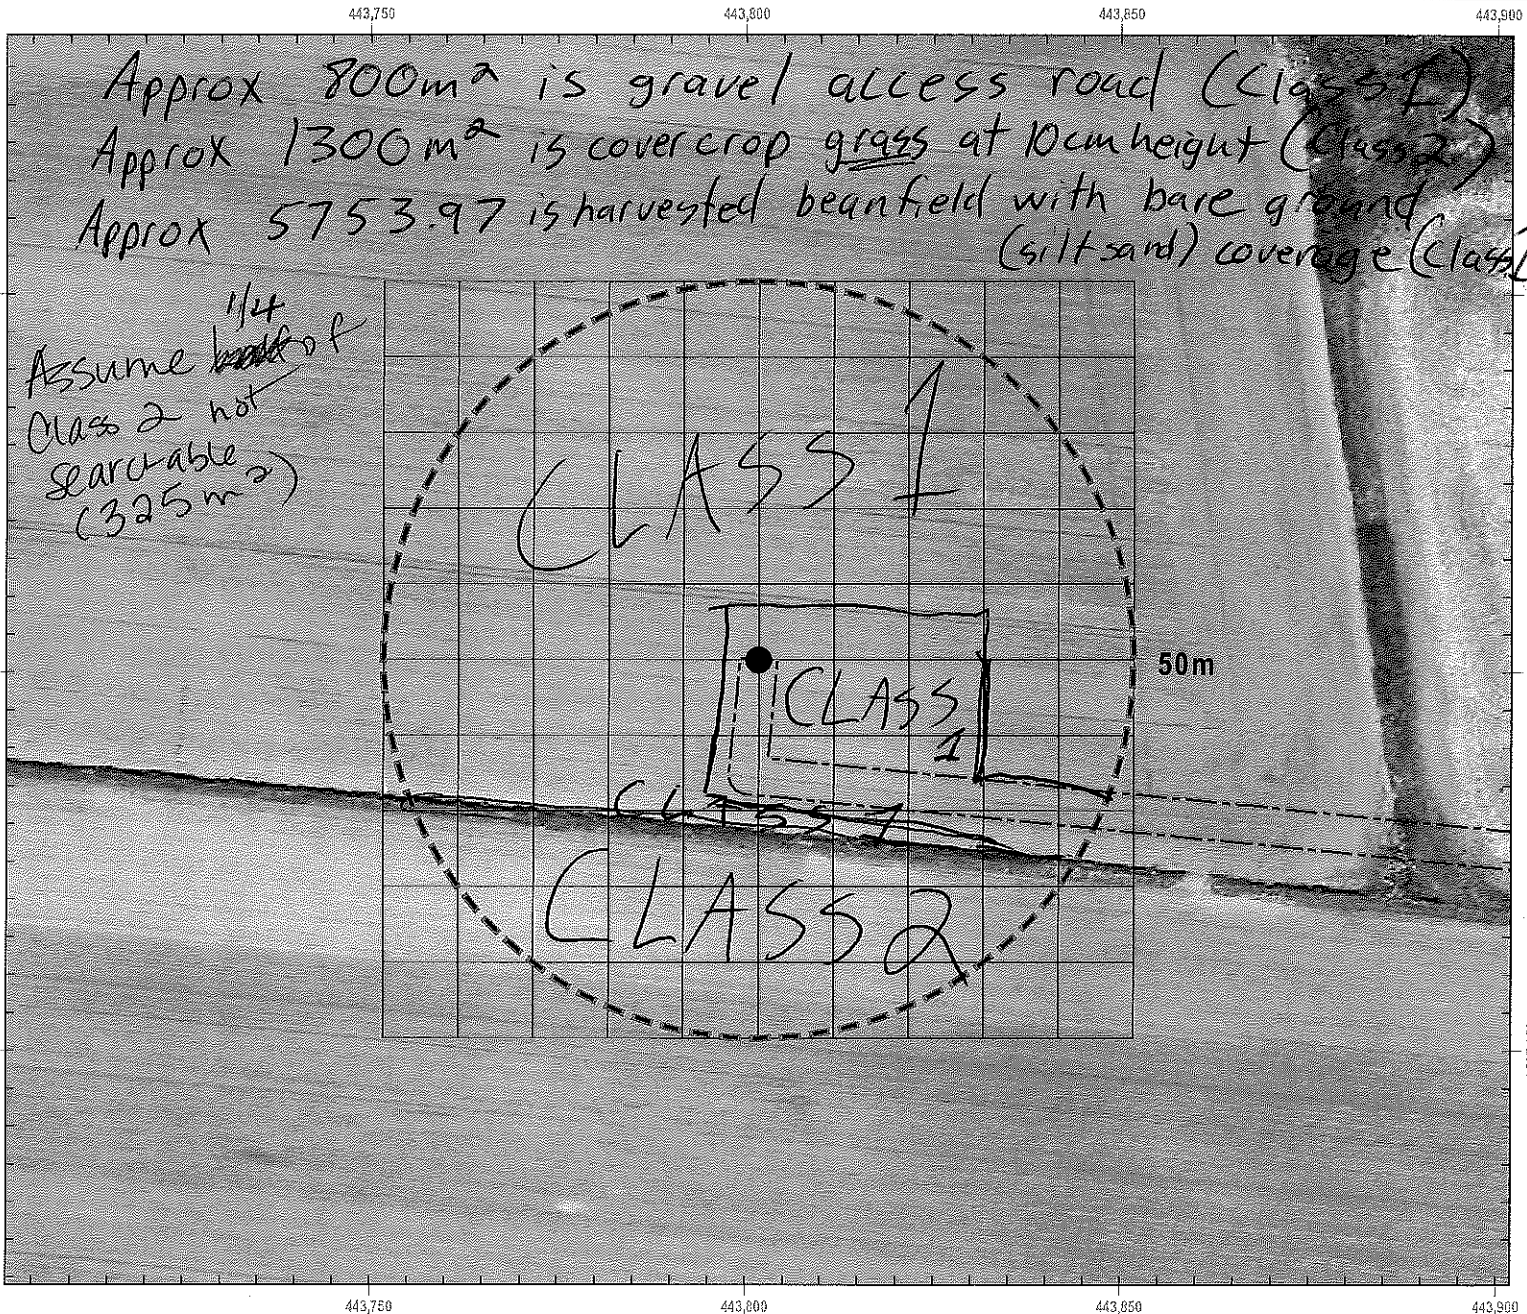 443,750 443,800 443,850 443,900
Approx 800m² is gravel access road (Class 1)
Approx 1300m² is covercrop grass at 10cm height (Class 2)
Approx 5753.97 is harvested beanfield with bare ground
(silt sand) coverage (Class 1
1/4
Assume of
Class 2 not
searchable
(325m²)
CLASS 1
50m
CLASS
1
CLASS 1
CLASS 2
443,750 443,800 443,850 443,900